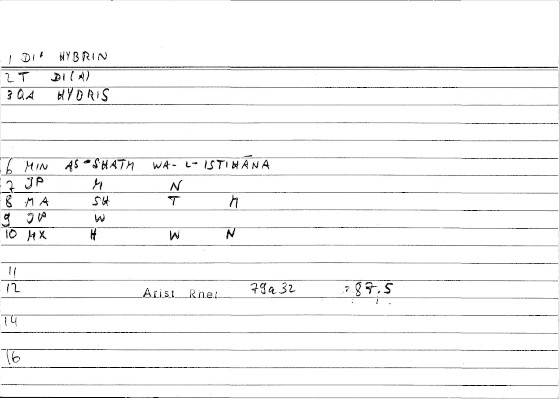 1 DI' HYBRIN
2 T DI(A)
3 QA HYBRIS
6 MIN AS-SHATM WA-L-ISTIHĀNA
7 JP M N
8 MA SH T M
9 JP W
10 MX H W N
11
12 Arist Rhet 79a32 :87.5
14
16